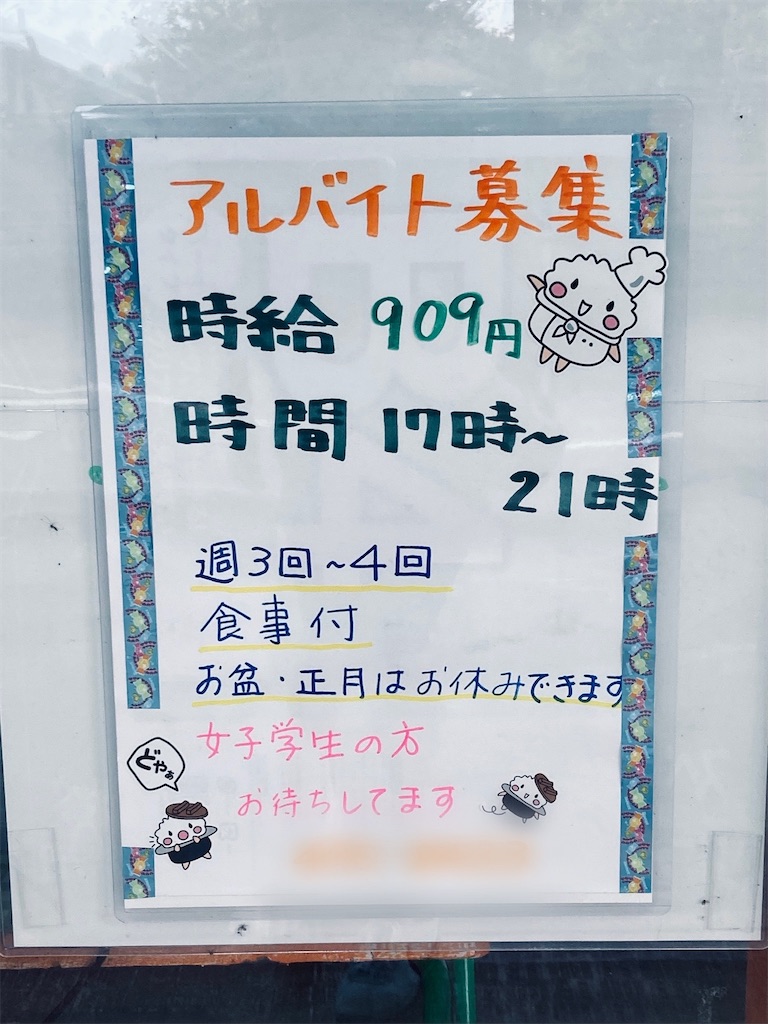 アルバイト募集
時給 909円
時間 17時～
21時
週3回～4回
食事付
お盆・正月はお休みできます
女子学生の方
お待ちしてます
どやぁ